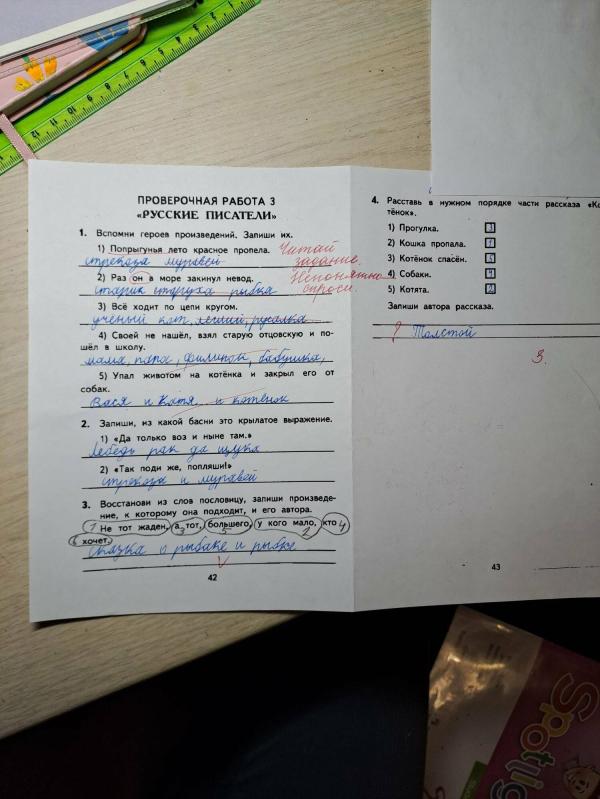 ПРОВЕРОЧНАЯ РАБОТА 3
«РУССКИЕ ПИСАТЕЛИ»
1. Вспомни героев произведений. Запиши их.
1) Попрыгунья лето красное пропела. Читай
стрекоза муравей задание.
2) Раз он в море закинул невод. Непонятно
старик старуха рыбка спроси.
3) Всё ходит по цепи кругом.
учёный кот, леший, русалка
4) Своей не нашёл, взял старую отцовскую и по-
шёл в школу.
мама, папа, филипок, бабушка,
5) Упал животом на котёнка и закрыл его от
собак.
Вася и Катя и котёнок
2. Запиши, из какой басни это крылатое выражение.
1) «Да только воз и ныне там.»
Лебедь рак да щука
2) «Так поди же, попляши!»
стрекоза и муравей
3. Восстанови из слов пословицу, запиши произведе-
ние, к которому она подходит, и его автора.
1 Не тот жаден, а тот, большего, у кого мало, кто 4
3 5 2
6 хочет.
Сказка о рыбаке и рыбке
42
4. Расставь в нужном порядке части рассказа «Ко
тёнок».
1) Прогулка. 3
2) Кошка пропала. 1
3) Котёнок спасён.
4) Собаки. 4
5) Котята. 2
Запиши автора рассказа.
? Толстой
3.
43
Spotlig
12 11 10 9 8 7 6 5 4